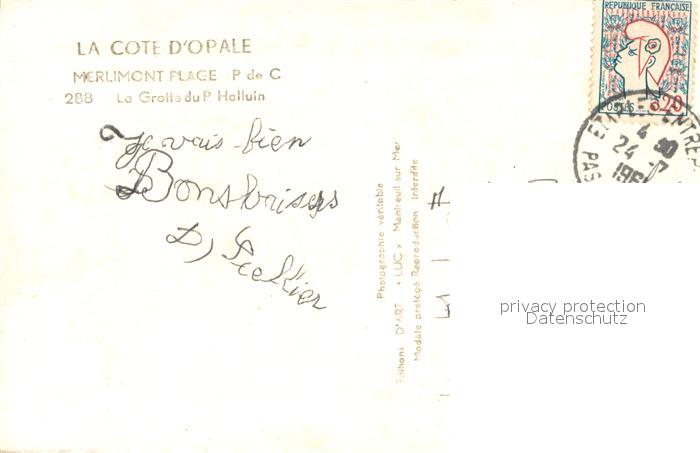 LA COTE D'OPALE
MERLIMONT PLAGE P de C
288 La Grotte du P Halluin
je vais bien
Bons baisers
D,
Photographie véritable
Editions D'ART « LUC » Montreuil sur Mer
Modèle protégé Reproduction Interdite
REPUBLIQUE FRANÇAISE
POSTES 0,20
ETAPLES
24 -7
PAS
privacy protection
Datenschutz